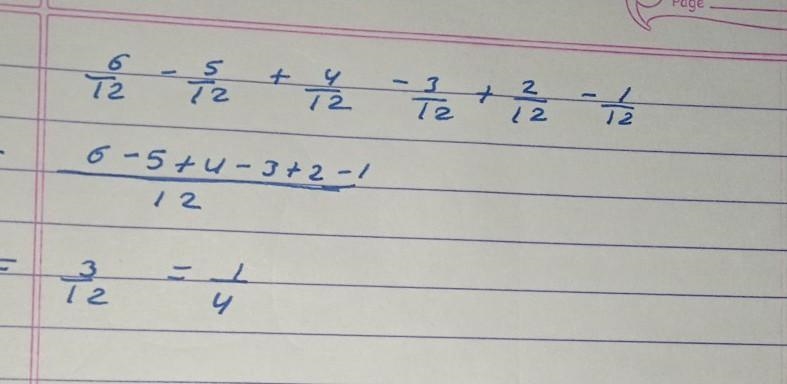 Page
6/12 - 5/12 + 4/12 - 3/12 + 2/12 - 1/12
6-5+4-3+2-1/12
= 3/12 = 1/4